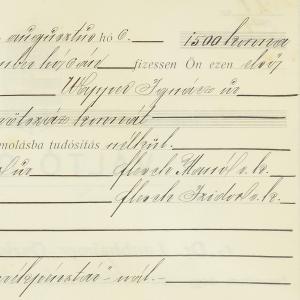 augusztus hó 6. 1500 korona
fizessen Ön ezen első
Ignácz úr
ötszáz koronát
molásba tudósítás nélkül.
úr Flesch Manó s.k.
Flesch Izidor s.k.
nál.